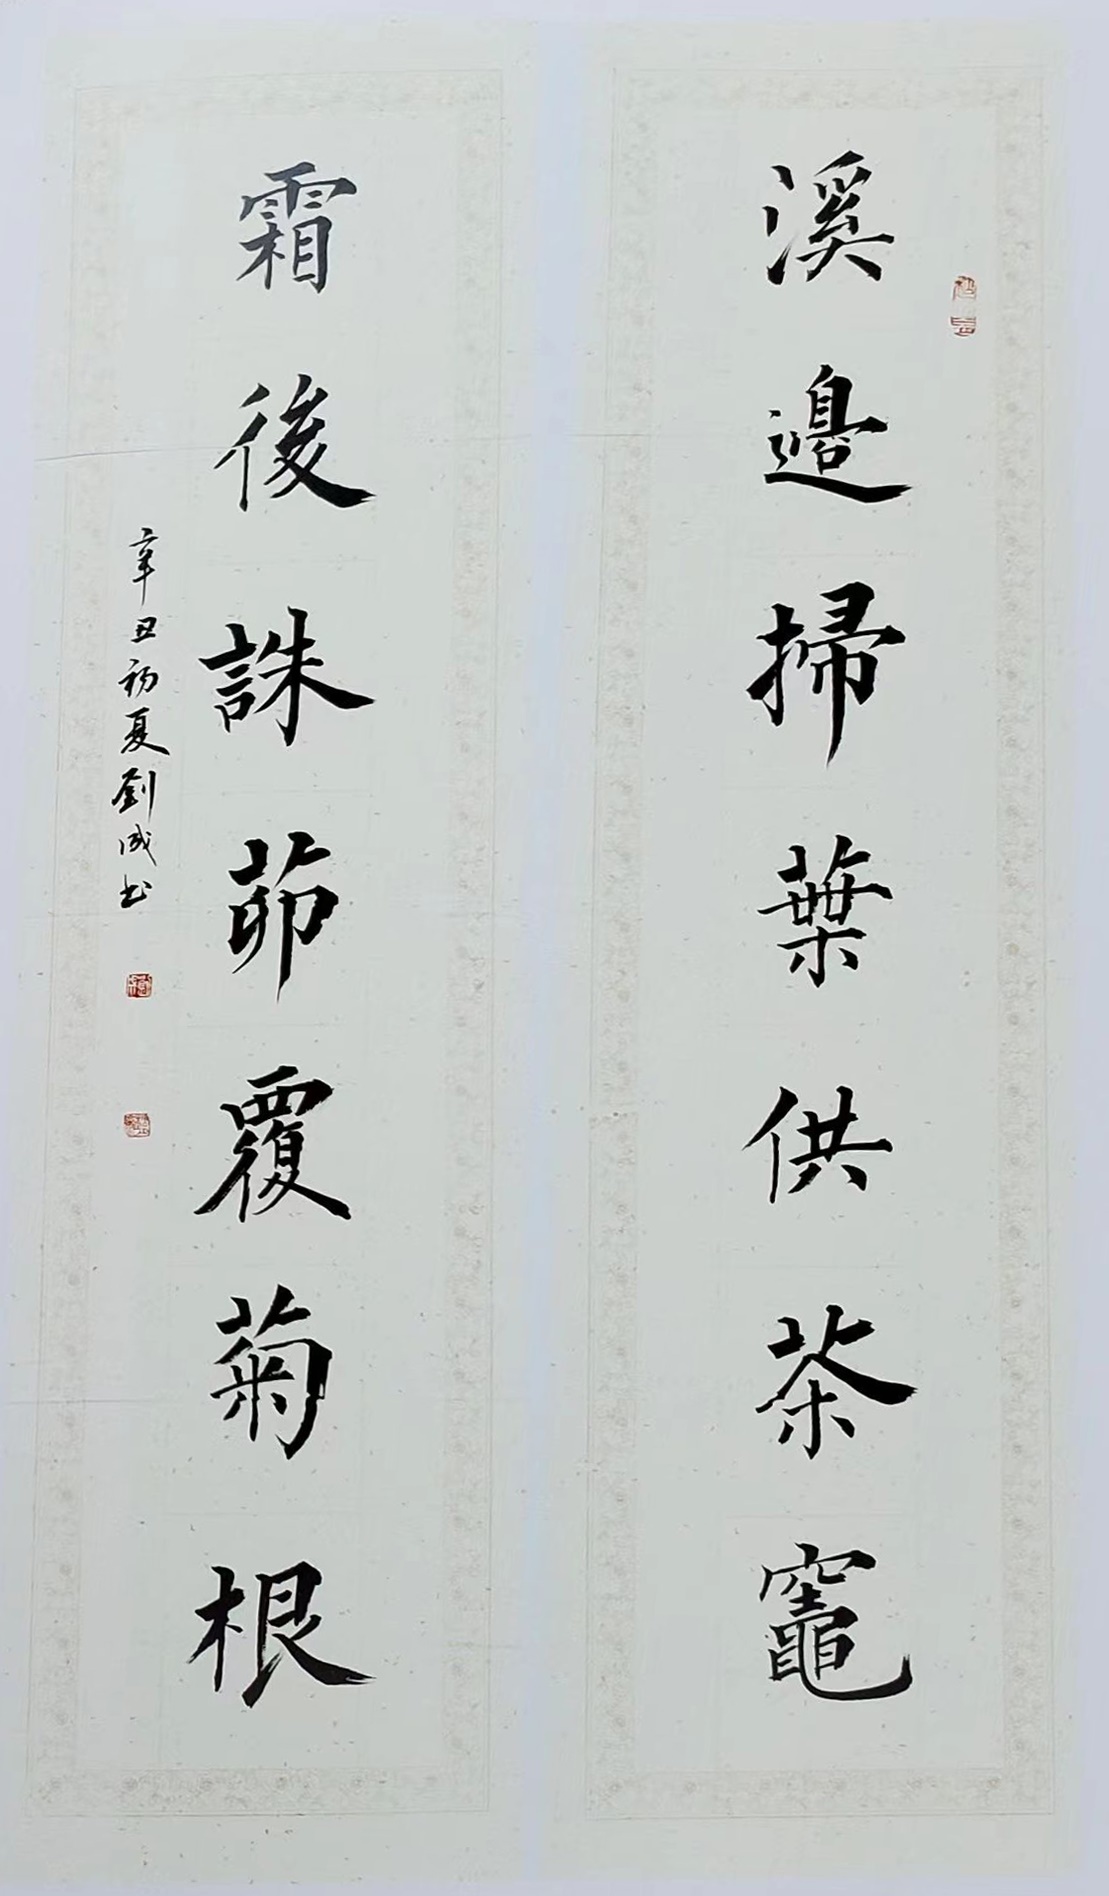 溪邊掃葉供茶竈
霜後誅茆覆菊根
辛丑初夏劉成书